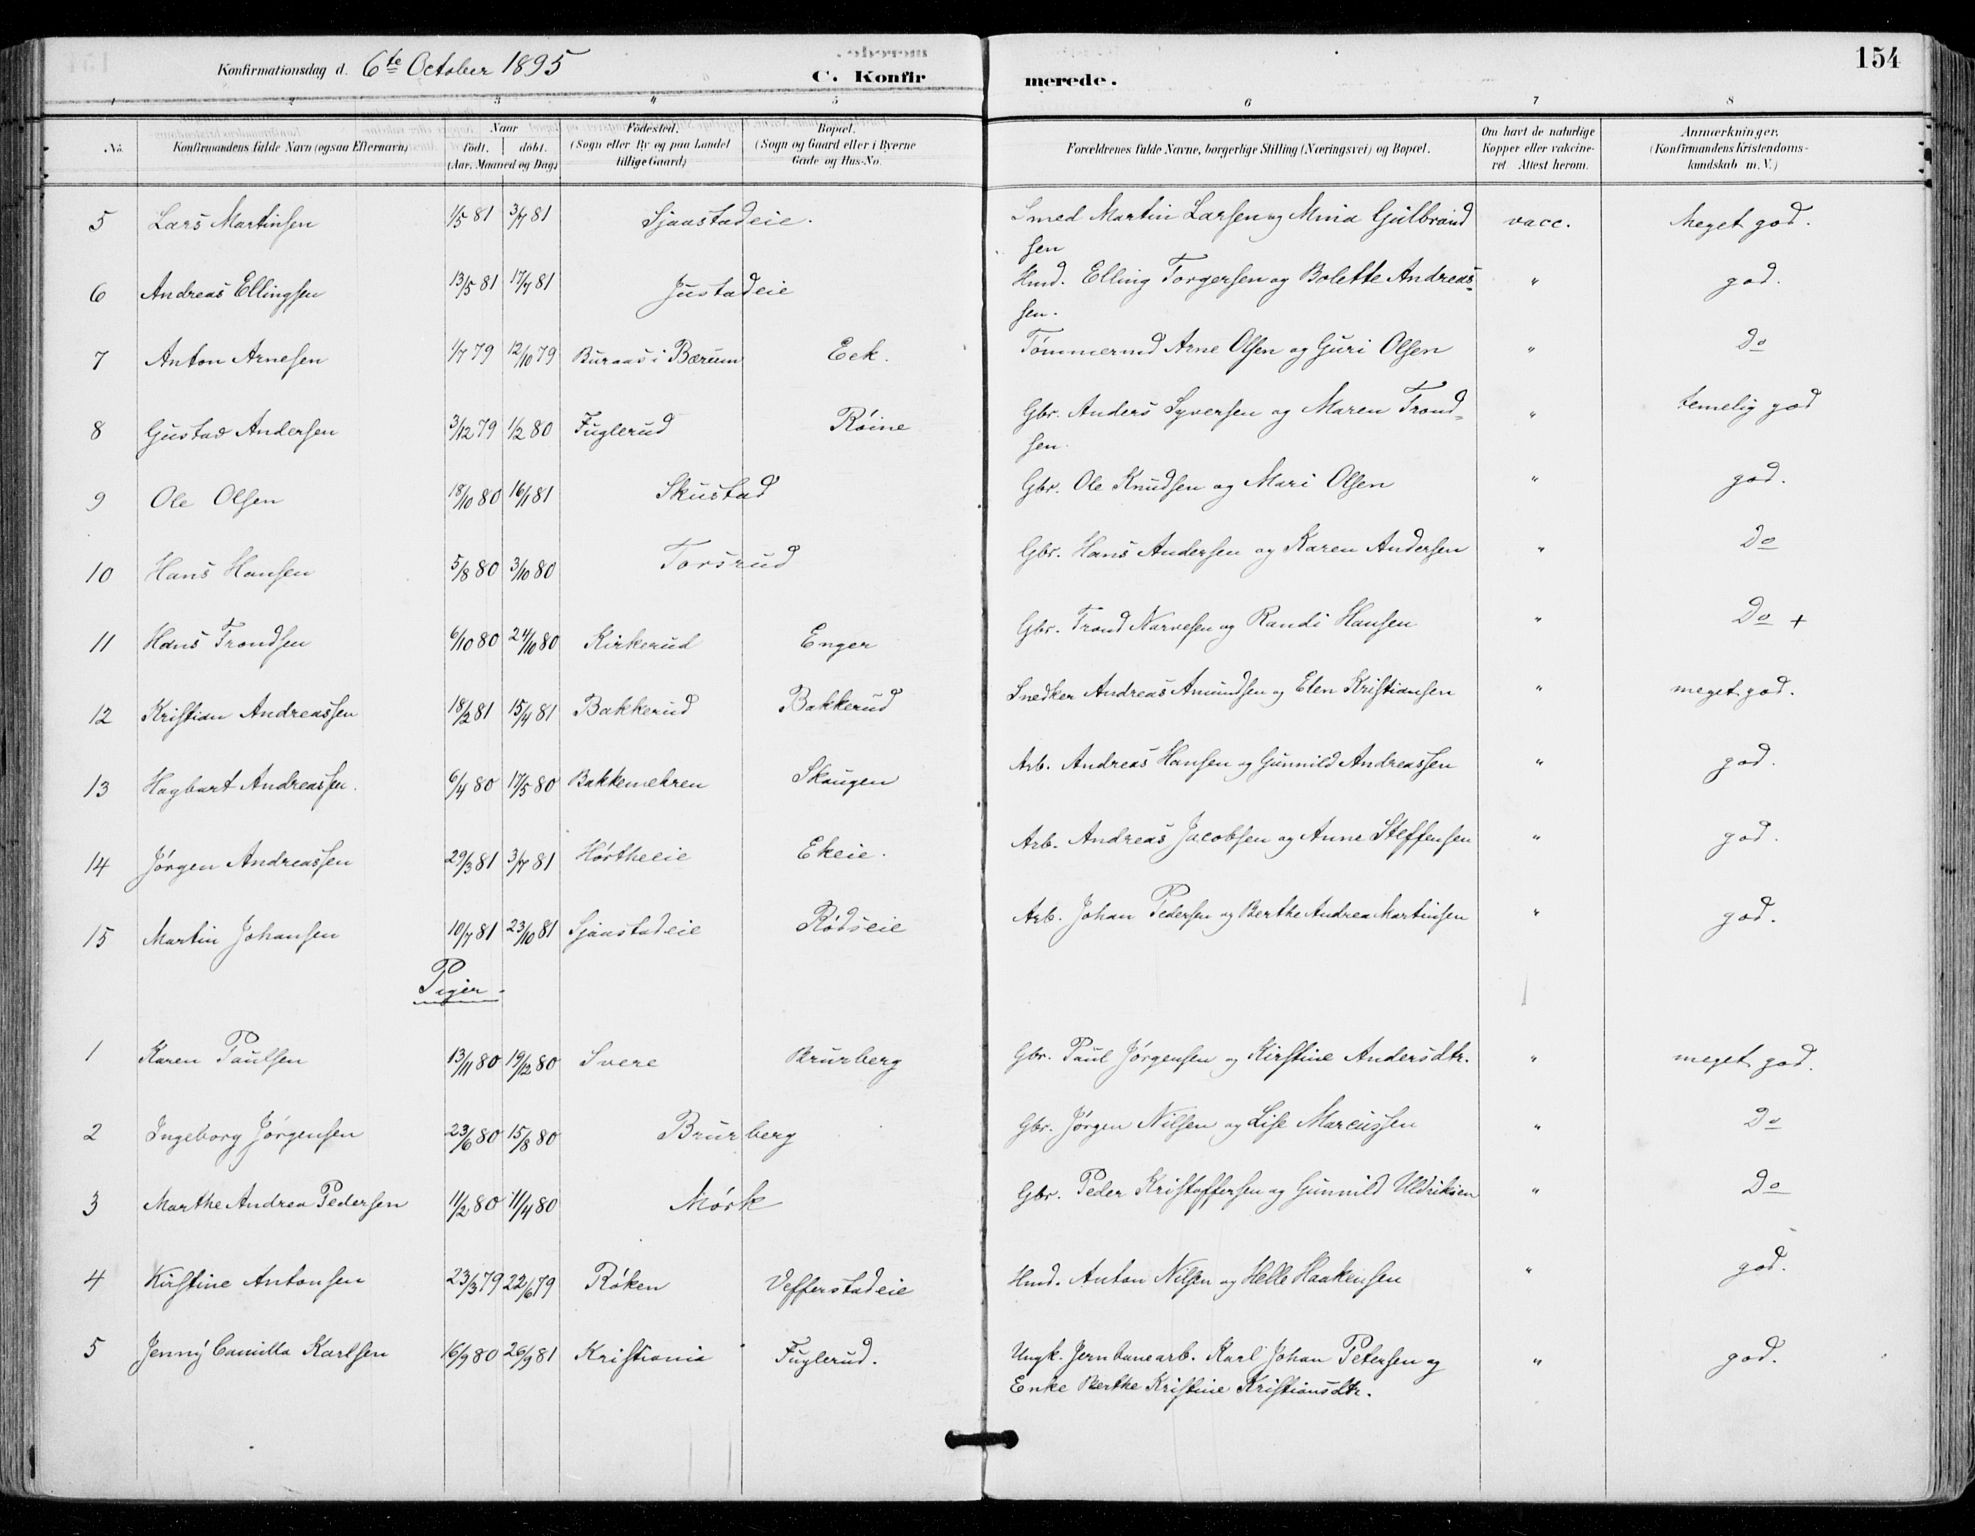 Konfirmationsdag d. 6te October 1895
C. Konfir merede. 154
1 2 3 4 5 6 7 8
No. Konfirmandens fulde Navn (ogsaa Efternavn) Naar født. døbt. (Aar, Maaned og Dag) Fødested. (Sogn eller By og paa Landet tillige Gaard) Bopæl. (Sogn og Gaard eller i Byerne Gade og Hus-No. Forældrenes fulde Navne, borgerlige Stilling (Næringsvei) og Bopæl. Om havt de naturlige Kopper eller vakcineret. Attest herom. Anmærkninger. (Konfirmandens Kristendomskundskab m. V.)
5 Lars Martinsen 1/5 81 3/7 81 Sjaastadeie. Smed Martin Larsen og Mina Gulbrand vacc. Meget god.
sen
6 Andreas Ellingsen 13/5 81 17/7 81 Justadeie Hmd. Elling Torgersen og Bolette Andreas- " god.
sen.
7 Anton Arnesen 1/7 79 12/10 79 Buraas i Bærum Eek. Tømmermd Arne Olsen og Guri Olsen " Do
8 Gustav Andersen 3/12 79 1/2 80 Fuglerud Røine Gbr. Anders Syversen og Maren Trond- " temelig god
sen.
9 Ole Olsen 18/10 80 16/1 81 Skustad Gbr. Ole Knudsen og Mari Olsen " god.
10 Hans Hansen 5/8 80 3/10 80 Torsrud Gbr. Hans Andersen og Karen Andersen " Do
11 Hans Trondsen 6/10 80 24/10 80 Kirkerud Enger Gbr. Trond Narvesen og Randi Hansen " Do +
12 Kristian Andreassen 18/2 81 15/4 81 Bakkerud Bakkerud Snedker Andreas Amundsen og Elen Kristiansen " meget god.
13 Hagbart Andreassen. 6/4 80 17/5 80 Bakkemehren Skaugen Arb. Andreas Hansen og Gunnild Andreassen " god.
14 Jørgen Andreassen 29/3 81 3/7 81 Hørtheeie Ekeie. Arb. Andreas Jacobsen og Anne Steffensen " god.
15 Martin Johansen 10/7 81 23/10 81 Sjaastadeie Rødseie Arb. Johan Pedersen og Berthe Andrea Martinsen " god.
Piger.
1 Karen Paulsen 13/11 80 19/12 80 Svere Brurberg Gbr. Paul Jørgensen og Kirstine Andersdtr. " meget god.
2 Ingeborg Jørgensen 23/6 80 15/8 80 Brurberg Gbr. Jørgen Nilsen og Lise Marcussen " Do
3 Marthe Andrea Pedersen 11/2 80 11/4 80 Mørk Gbr. Peder Kristoffersen og Gunnild Uldriksen " Do
4 Kirstine Antonsen 23/3 79 22/6 79 Røken Vefferstadeie Hmd. Anton Nilsen og Helle Haakensen " god.
5 Jenny Camilla Karlsen 16/9 80 26/9 81 Kristiania Fuglerud. Ungk. Jernbanearb. Karl Johan Petersen og " god.
Enke Berthe Kristine Kristiansdtr.